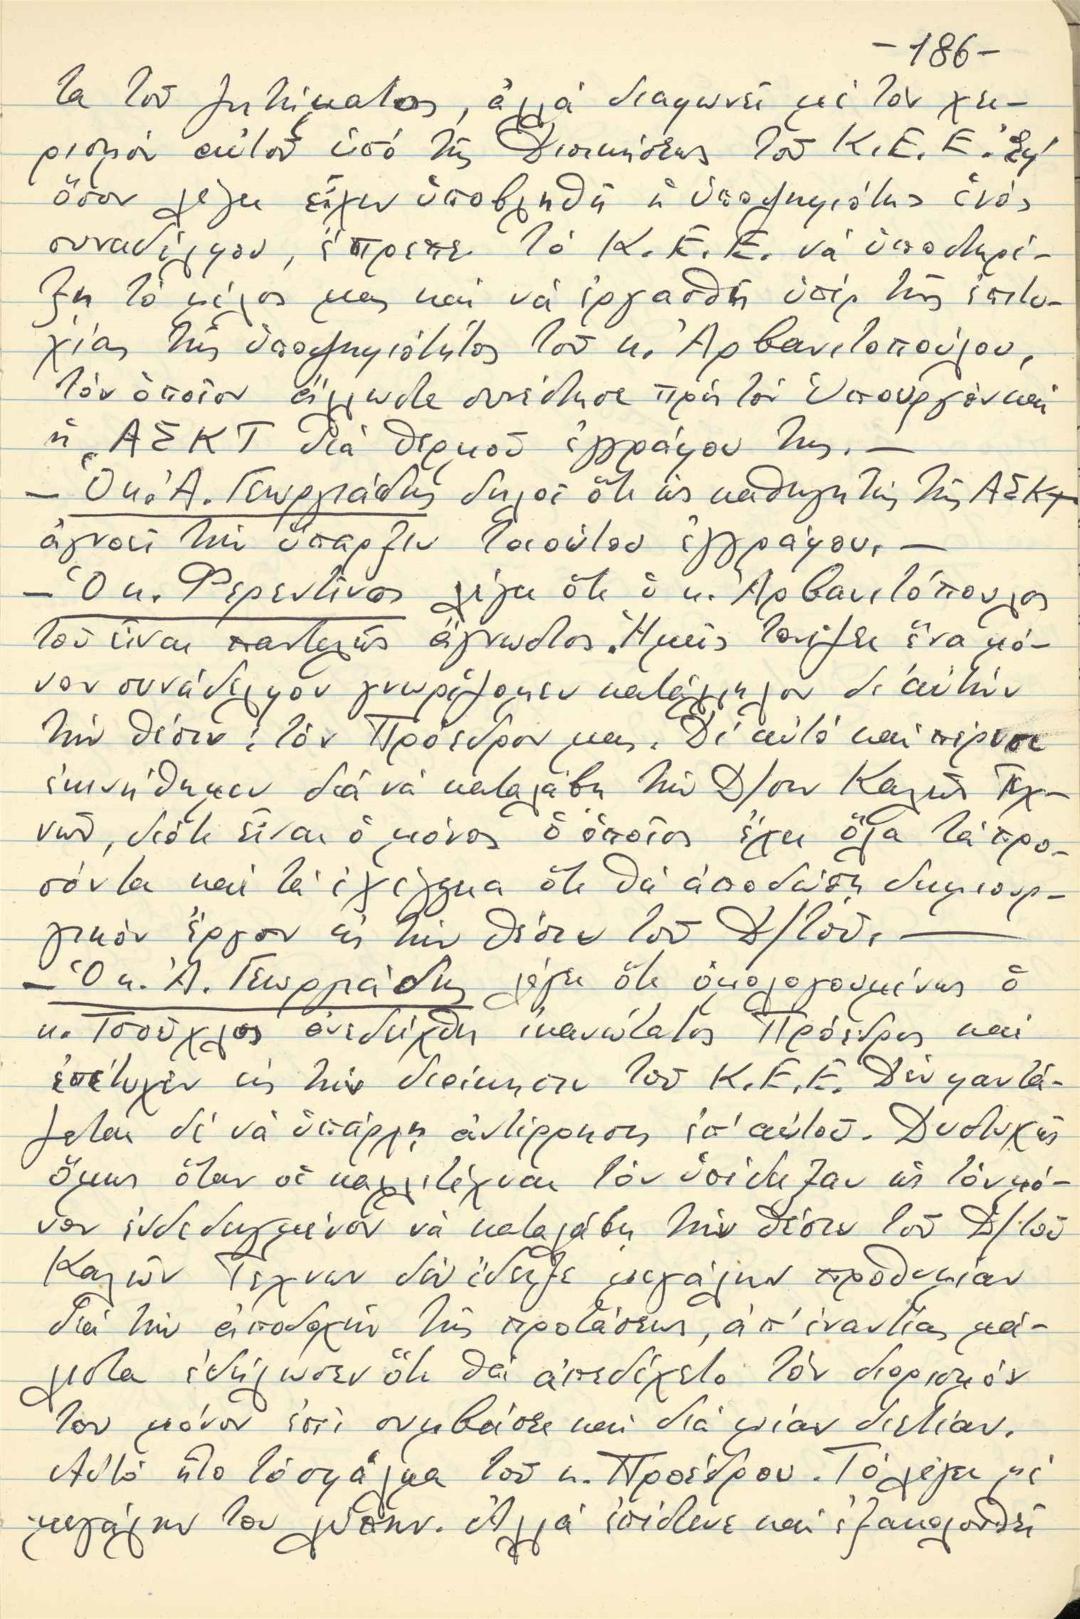 -186-
τα τοῦ ζητήματος, ἀλλά διαφωνεῖ μέ τόν χει-
ρισμόν αὐτοῦ ὑπό τῆς Διοικήσεως τοῦ Κ.Ε.Ε. Ἐφ'
ὅσον λέγει εἶχεν ὑποβληθῆ ἡ ὑποψηφιότης ἑνός
συναδέλφου, ἔπρεπε τό Κ.Ε.Ε. νά ὑποστηρί-
ξη τό μέλος μας καί νά ἐργασθῆ ὑπέρ τῆς ἐπιτυ-
χίας τῆς ὑποψηφιότητος τοῦ κ. Ἀρβανιτοπούλου,
τόν ὁποῖον ἄλλωστε συνέστησε πρός τόν Ὑπουργόν καί
ἡ ΑΣΚΤ διά θερμοῦ ἐγγράφου της. —
— Ὁ κ. Ἀ. Γεωργιάδης δηλοῖ ὅτι ὡς καθηγητής τῆς ΑΣΚΤ
ἀγνοεῖ τήν ὕπαρξιν τοιούτου ἐγγράφου. —
— Ὁ κ. Φερεντῖνος λέγει ὅτι ὁ κ. Ἀρβανιτόπουλος
τοῦ εἶναι παντελῶς ἄγνωστος. Ἡμεῖς τονίζει ἕνα μό-
νον συνάδελφον γνωρίζομεν κατάλληλον δι' αὐτήν
τήν θέσιν: τόν Πρόεδρον μας. Δι' αὐτό καί πέρυσι
ἐκινήθημεν διά νά καταλάβη τήν Δ/σιν Καλῶν Τεχ-
νῶν, διότι εἶναι ὁ μόνος ὁ ὁποῖος ἔχει ὅλα τά προ-
σόντα καί τά ἐχέγγυα ὅτι θά ἀποδώση δημιουρ-
γικόν ἔργον εἰς τήν θέσιν τοῦ Δ/τοῦ. —
— Ὁ κ. Ἀ. Γεωργιάδης λέγει ὅτι ὁμολογουμένως ὁ
κ. Τσοῦχλος ἀνεδείχθη ἱκανώτατος Πρόεδρος καί
ἐπέτυχεν εἰς τήν διοίκησιν τοῦ Κ.Ε.Ε. Δέν φαντά-
ζεται δέ νά ὑπάρχη ἀντίρρησις ἐπ' αὐτοῦ. Δυστυχῶς
ὅμως ὅταν οἱ καλλιτέχναι τόν ὑπέδειξαν ὡς τόν μό-
νον ἐνδεδειγμένον νά καταλάβη τήν θέσιν τοῦ Δ/τοῦ
Καλῶν Τεχνῶν δέν ἔδειξε μεγάλην προθυμίαν
διά τήν ἀποδοχήν τῆς προτάσεως, ἀπ' ἐναντίας μά-
λιστα ἐδήλωσεν ὅτι θά ἀπεδέχετο τόν διορισμόν
του μόνον ἐπί συμβάσει καί διά μίαν διετίαν.
Αὐτό ἦτο τό σφάλμα τοῦ κ. Προέδρου. Τό λέγει μέ
μεγάλην του λύπην. Ἀλλά ἐπίστευε καί ἐξακολουθεῖ